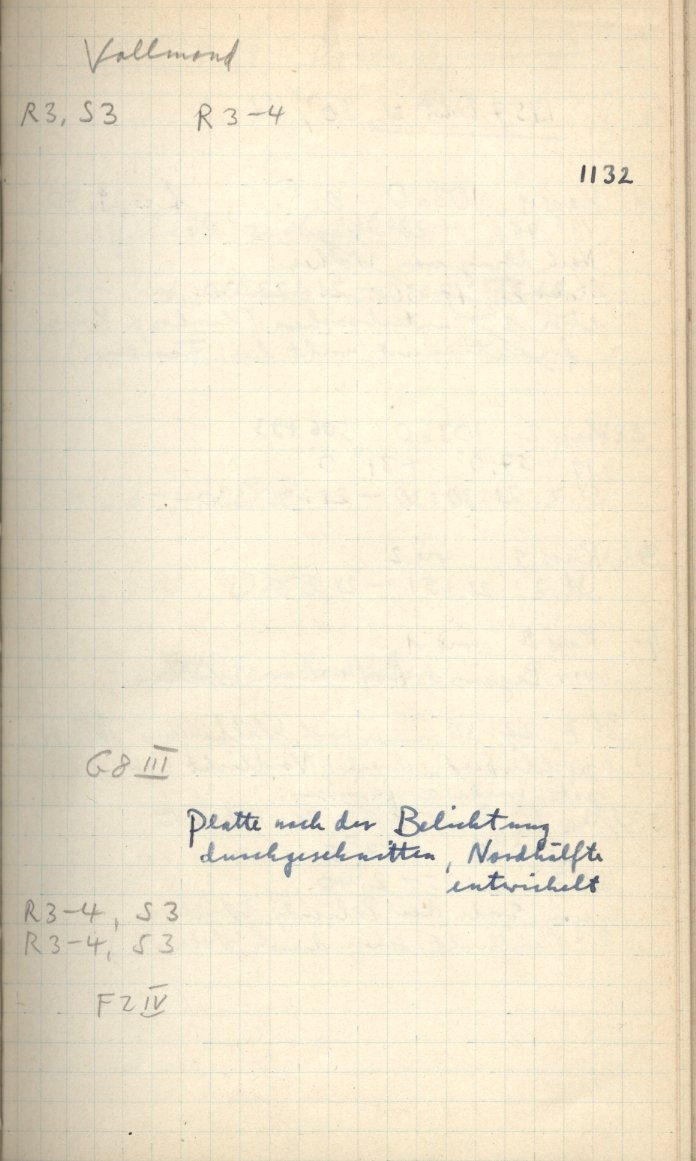 Vollmond
R3, S3 R3-4
1132
G8 III
Platte nach der Belichtung
durchgeschnitten, Nordhälfte
entwickelt
R3-4, S3
R3-4, S3
F2 IV